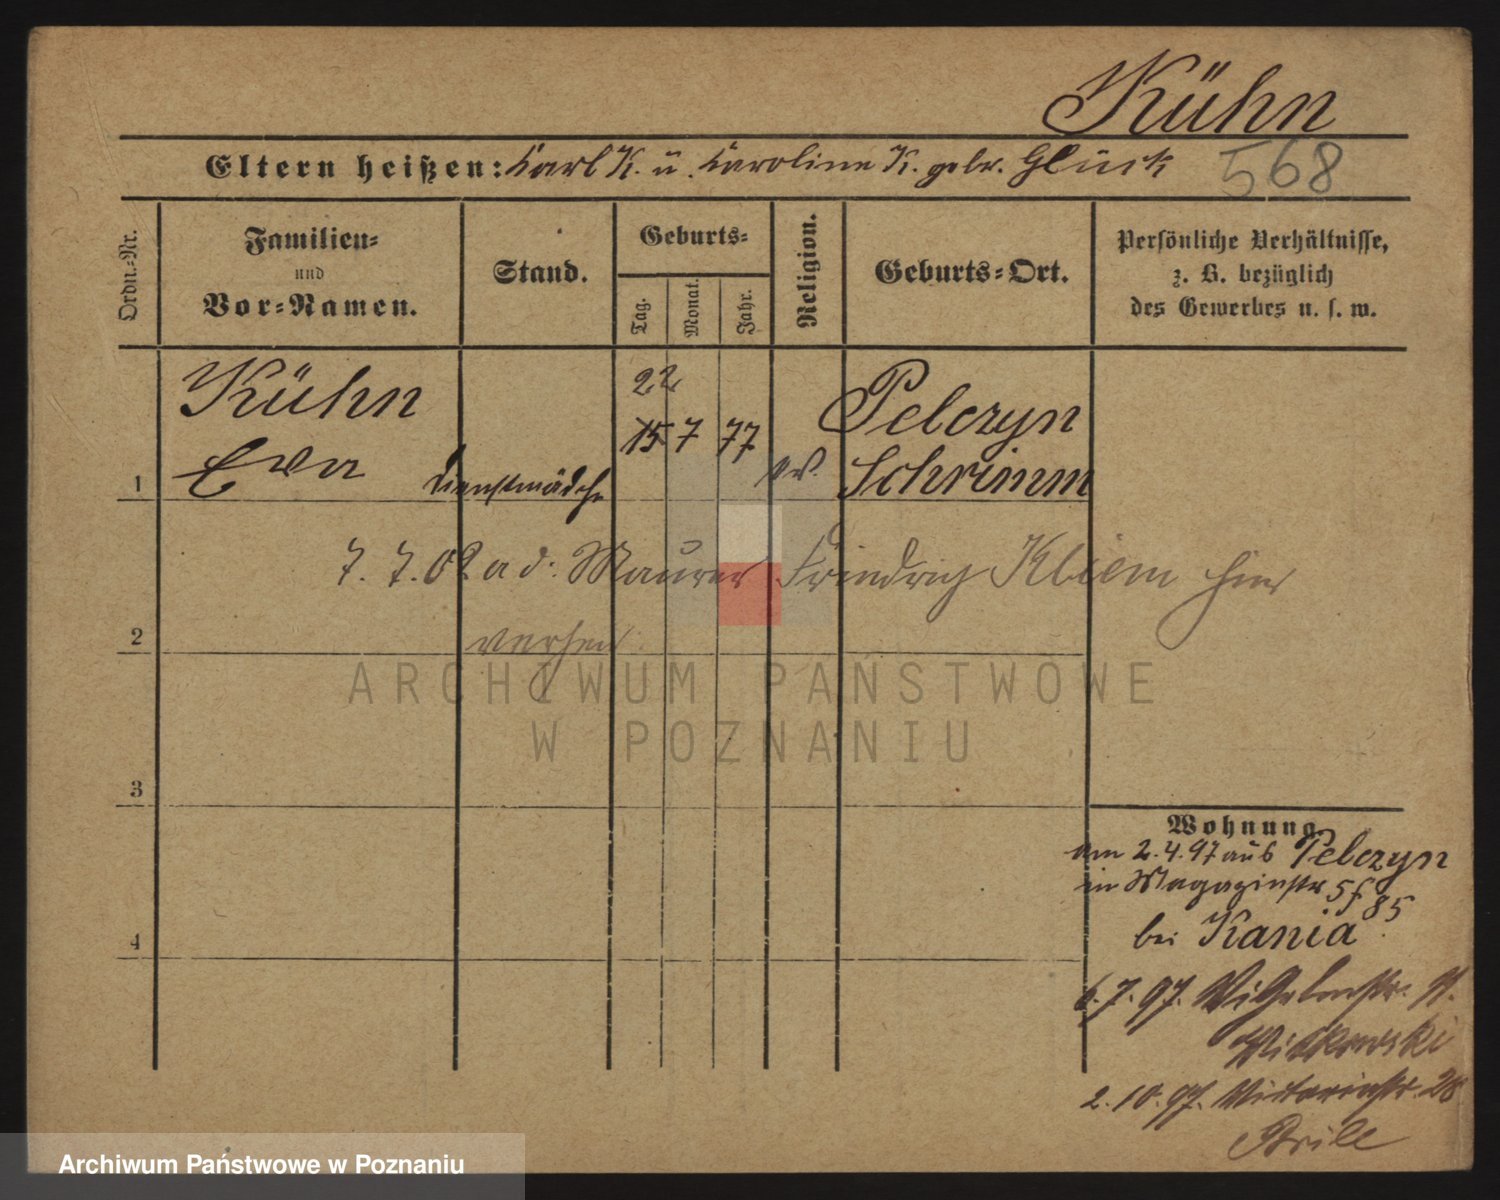 Kühn
Eltern heißen: Karl K. u. Karoline K. gebr. Glück 568
Ordn.-Nr.
Familien-
und
Vor-Namen.
Stand.
Geburts-
Tag.
Monat.
Jahr.
Religion.
Geburts-Ort.
Persönliche Verhältnisse,
z. B. bezüglich
des Gewerbes u. s. w.
Kühn
22
15 7 77
Pelczyn
1 Eva Dienstmädch ev. Schrimm
7. 7. 02 a d. Maurer Friedrich Kliem hier
2 verh
3
4
Wohnung
am 2.4.97 aus Pelczyn
in Magazinstr 5 f 85
bei Kania
6.7.97. 
Witkowski
2.10.97. Victoriastr. 28
ARCHIWUM PAŃSTWOWE
W POZNANIU
Archiwum Państwowe w Poznaniu